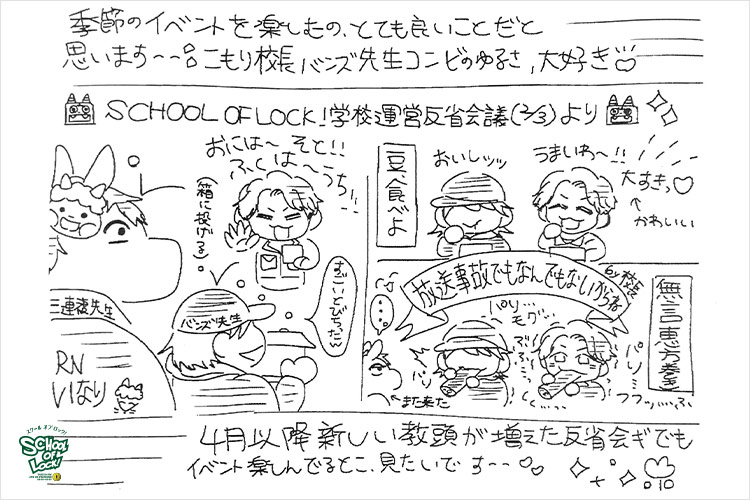 季節のイベントを楽しむの、とても良いことだと
思います〜〜 こもり校長バンズ先生コンビのゆるさ、大好き♡
SCHOOL OF LOCK!学校運営反省会議(2/3)より
おには〜そと!!
ふくは〜うち!!
(箱に投げる)
すごいとびちった
バンズ先生
三連複先生
RN
いなり
豆食べよ
おいしッッ
うまいね〜!!
大すき♡
↑かわいい
放送事故でもなんでもないからね
by校長
無言恵方巻
パリ…
モグ…
パリ
パリ
フフッ
また来た
スクール オブ ロック!
SCHOOL OF LOCK!
4月以降新しい教頭が増えた反省会ギでも
イベント楽しんでるとこ、見たいです〜〜